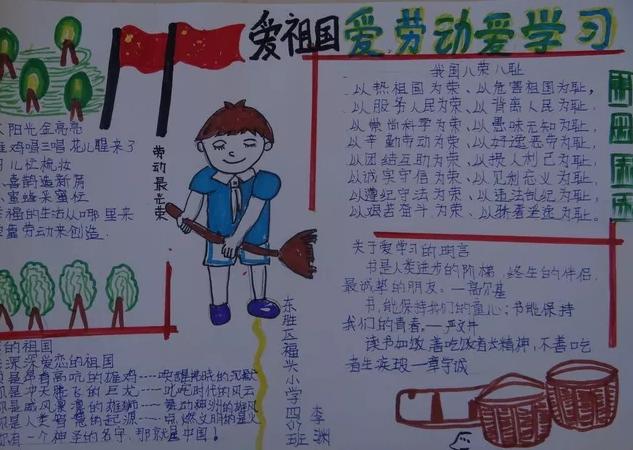 爱祖国爱劳动爱学习
太阳光金亮亮
雄鸡唱三唱 花儿醒来了
忙梳妆
小喜鹊造新房
小蜜蜂采蜜忙
幸福的生活从哪里来
要靠劳动来创造.
劳动最光荣
我国八荣八耻
以热祖国为荣、以危害祖国为耻,
以服务人民为荣、以背离人民为耻,
以崇尚科学为荣、以愚昧无知为耻,
以辛勤劳动为荣、以好逸恶劳为耻,
以团结互助为荣、以损人利己为耻,
以诚实守信为荣、以见利忘义为耻,
以遵纪守法为荣、以违法乱纪为耻,
以艰苦奋斗为荣、以骄奢淫逸为耻。
关于爱学习的名言
书是人类进步的阶梯,终生的伴侣,
最诚挚的朋友。—高尔基
书,能保持我们的童心;书能保持
我们的青春。—严文井
读书如饭,善吃饭者长精神,不善吃
者生疾瘊—章学诚
的祖国
深深爱恋的祖国
是昂首高吭的雄鸡----唤醒
是冲天腾飞的巨龙----叱咤时代的风云
是威风凛凛的雄狮----舞动神州的雄风
是人类智慧的起源----点燃文明的星火
有一个神圣的名字,那就是中国!
东胜区福兴小学四(5)班
李渊